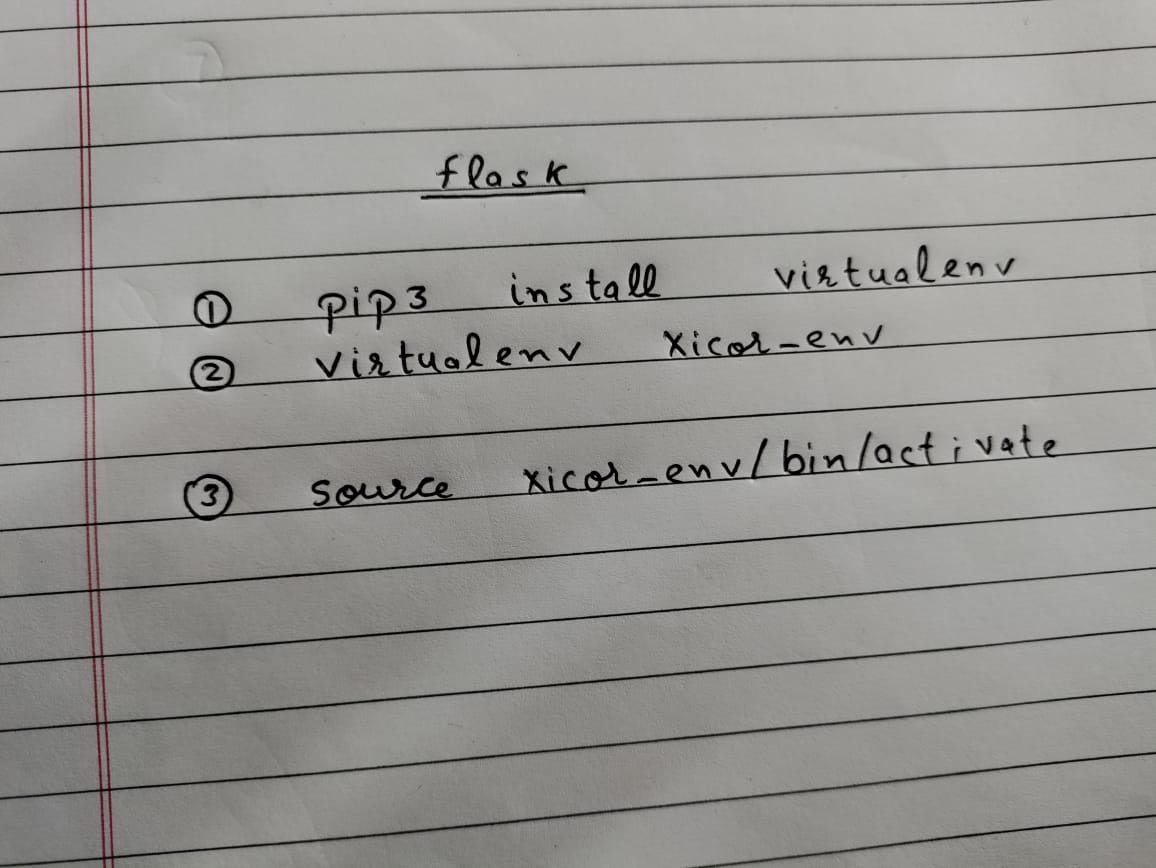 flask
① pip3 install virtualenv
② virtualenv xicor-env
③ source xicor-env/bin/activate